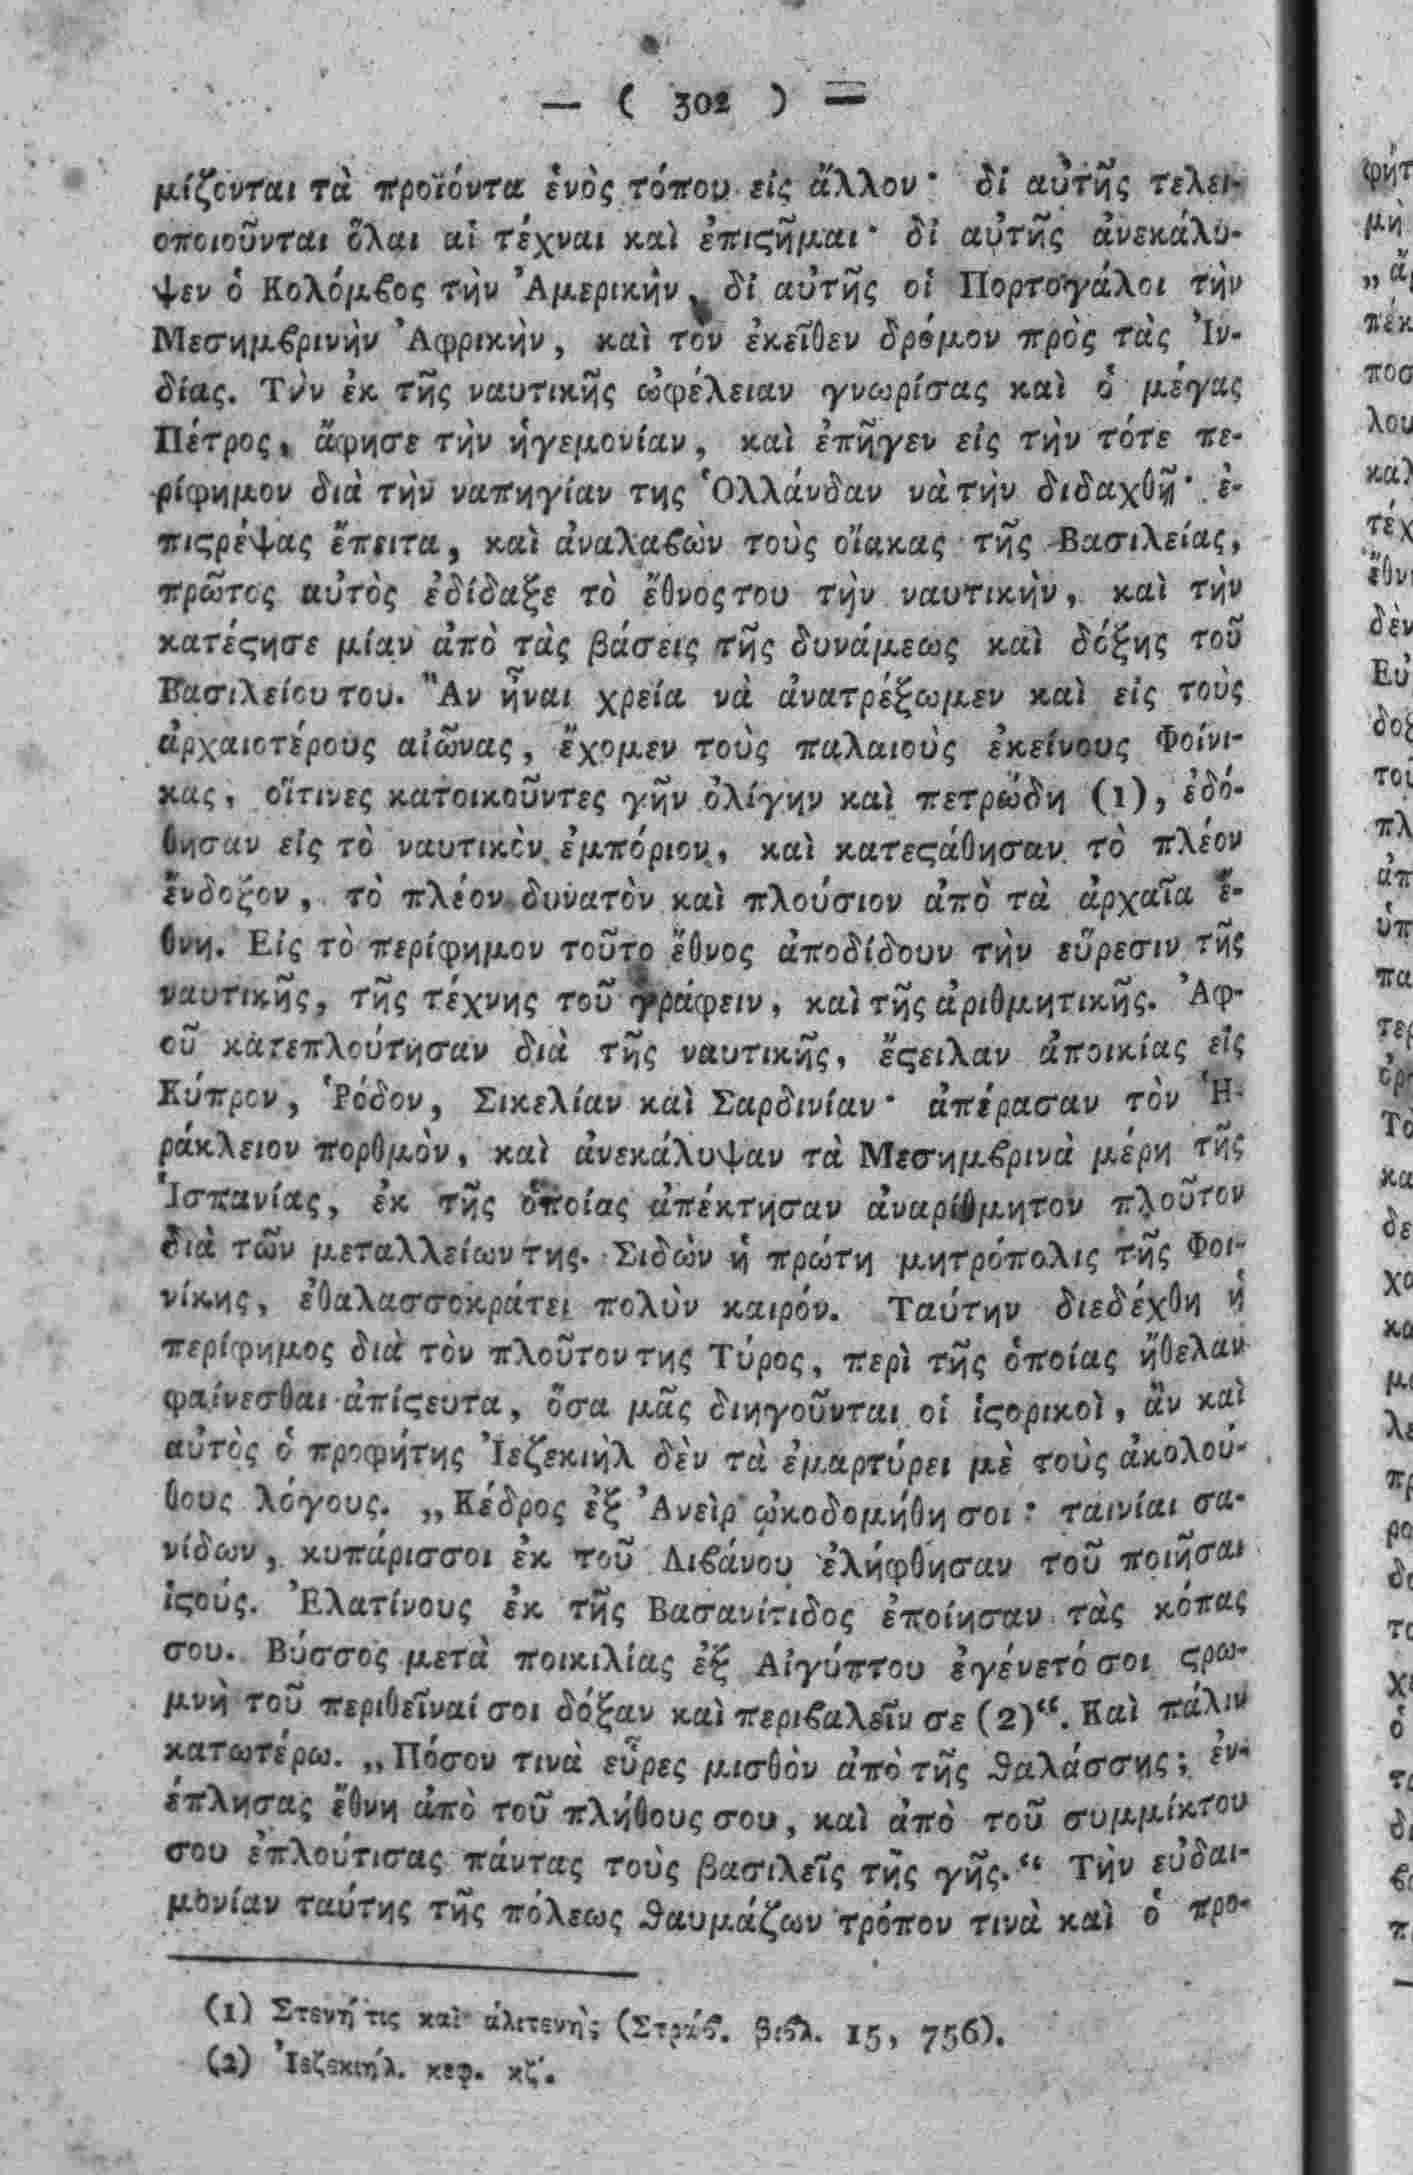 — ( 302 ) —
μίζονται τὰ προϊόντα ἑνὸς τόπου εἰς ἄλλον· δἰ αὐτῆς τελει-
οποιοῦνται ὅλαι αἱ τέχναι καὶ ἐπιϛῆμαι· δἰ αὐτῆς ἀνεκάλυ-
ψεν ὁ Κολόμϐος τὴν Ἀμερικὴν, δἰ αὐτῆς οἱ Πορτογάλοι τὴν
Μεσημϐρινὴν Ἀφρικὴν, καὶ τὸν ἐκεῖθεν δρόμον πρὸς τὰς Ἰν-
δίας. Τὴν ἐκ τῆς ναυτικῆς ὠφέλειαν γνωρίσας καὶ ὁ μέγας
Πέτρος, ἄφησε τὴν ἡγεμονίαν, καὶ ἐπῆγεν εἰς τὴν τότε πε-
ρίφημον διὰ τὴν ναπηγίαν της Ὁλλάνδαν νὰ τὴν διδαχθῇ· ἐ-
πιϛρέψας ἔπειτα, καὶ ἀναλαϐὼν τοὺς οἴακας τῆς Βασιλείας,
πρῶτος αὐτὸς ἐδίδαξε τὸ ἔθνος του τὴν ναυτικὴν, καὶ τὴν
κατέϛησε μίαν ἀπὸ τὰς βάσεις τῆς δυνάμεως καὶ δόξης τοῦ
Βασιλείου του. Ἂν ἦναι χρεία νὰ ἀνατρέξωμεν καὶ εἰς τοὺς
ἀρχαιοτέρους αἰῶνας, ἔχομεν τοὺς παλαιοὺς ἐκείνους Φοίνι-
κας, οἵτινες κατοικοῦντες γῆν ὀλίγην καὶ πετρώδη (1), ἐδό-
θησαν εἰς τὸ ναυτικὸν ἐμπόριον, καὶ κατεϛάθησαν τὸ πλέον
ἔνδοξον, τὸ πλέον δυνατὸν καὶ πλούσιον ἀπὸ τὰ ἀρχαῖα ἔ-
θνη. Εἰς τὸ περίφημον τοῦτο ἔθνος ἀποδίδουν τὴν εὕρεσιν τῆς
ναυτικῆς, τῆς τέχνης τοῦ γράφειν, καὶ τῆς ἀριθμητικῆς. Ἀφ-
οῦ κατεπλούτησαν διὰ τῆς ναυτικῆς, ἔϛειλαν ἀποικίας εἰς
Κύπρον, Ῥόδον, Σικελίαν καὶ Σαρδινίαν· ἀπέρασαν τὸν Ἡ-
ράκλειον πορθμὸν, καὶ ἀνεκάλυψαν τὰ Μεσημϐρινὰ μέρη τῆς
Ἱσπανίας, ἐκ τῆς ὁποίας ἀπέκτησαν ἀναρίθμητον πλοῦτον
διὰ τῶν μεταλλείων της. Σιδὼν ἡ πρώτη μητρόπολις τῆς Φοι-
νίκης, ἐθαλασσοκράτει πολὺν καιρόν. Ταύτην διεδέχθη ἡ
περίφημος διὰ τὸν πλοῦτον της Τύρος, περὶ τῆς ὁποίας ἤθελαν
φαίνεσθαι ἀπίϛευτα, ὅσα μᾶς διηγοῦνται οἱ ἱϛορικοὶ, ἂν καὶ
αὐτὸς ὁ προφήτης Ἰεζεκιὴλ δὲν τὰ ἐμαρτύρει μὲ τοὺς ἀκολού-
θους λόγους. „Κέδρος ἐξ Ἀνεὶρ ᾠκοδομήθη σοι: ταινίαι σα-
νίδων, κυπάρισσοι ἐκ τοῦ Λιϐάνου ἐλήφθησαν τοῦ ποιῆσαι
ἱϛούς. Ἐλατίνους ἐκ τῆς Βασανίτιδος ἐποίησαν τὰς κόπας
σου. Βύσσος μετὰ ποικιλίας ἐξ Αἰγύπτου ἐγένετό σοι ϛρω-
μνὴ τοῦ περιθεῖναί σοι δόξαν καὶ περιϐαλεῖν σε (2)“. Καὶ πάλιν
κατωτέρω. „Πόσον τινὰ εὗρες μισθὸν ἀπὸ τῆς θαλάσσης; ἐν-
έπλησας ἔθνη ἀπὸ τοῦ πλήθους σου, καὶ ἀπὸ τοῦ συμμίκτου
σου ἐπλούτισας πάντας τοὺς βασιλεῖς τῆς γῆς.“ Τὴν εὐδαι-
μονίαν ταύτης τῆς πόλεως θαυμάζων τρόπον τινὰ καὶ ὁ προ-
(1) Στενή τις καὶ ἁλιτενὴς (Στράϐ. βιϐλ. 15, 756).
(2) Ἰεζεκιήλ. κεφ. κζ΄.